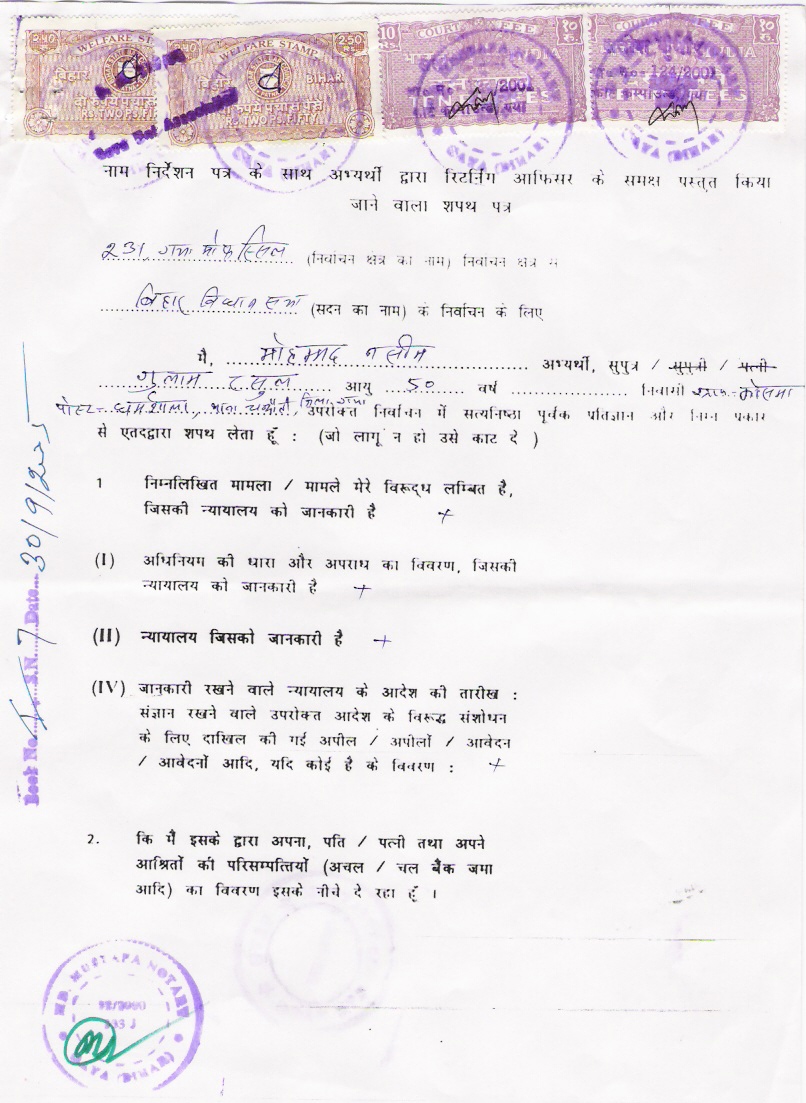 २.५० WELFARE STAMP
बिहार
दो रुपये पचास पैसे
RS. TWO PS. FIFTY
WELFARE STAMP 2.50 RS.
बिहार BIHAR
रुपये पचास पैसे
RS. TWO PS. FIFTY
10 RS. COURT FEE १० रु.
COURT FEE १० रु.
2001
124/2001
GAYA (BIHAR)
GAYA (BIHAR)
नाम निर्देशन पत्र के साथ अभ्यर्थी द्वारा रिटर्निंग आफिसर के समक्ष पस्तुत किया
जाने वाला शपथ पत्र
231, गया मोफस्सिल (निर्वाचन क्षेत्र का नाम) निर्वाचन क्षेत्र से
बिहार विधान सभा (सदन का नाम) के निर्वाचन के लिए
मैं, मोहम्मद नसीम अभ्यर्थी, सुपुत्र / सुपुत्री / पत्नी
गुलाम रसुल आयु 50 वर्ष निवासी ग्राम-कोसमा
पोस्ट-धर्मशाला, थाना जिला गया, उपरोक्त निर्वाचन में सत्यनिष्ठा पूर्वक प्रतिज्ञान और निम्न प्रकार
से एतदद्वारा शपथ लेता हूँ : (जो लागू न हो उसे काट दे )
1 निम्नलिखित मामला / मामले मेरे विरूद्ध लम्बित है,
जिसकी न्यायालय को जानकारी है +
(I) अधिनियम की धारा और अपराध का विवरण, जिसकी
न्यायालय को जानकारी है +
(II) न्यायालय जिसको जानकारी है +
(IV) जानकारी रखने वाले न्यायालय के आदेश की तारीख :
संज्ञान रखने वाले उपरोक्त आदेश के विरूद्ध संशोधन
के लिए दाखिल की गई अपील / अपीलों / आवेदन
/ आवेदनों आदि, यदि कोई है के विवरण : +
2. कि मैं इसके द्वारा अपना, पति / पत्नी तथा अपने
आश्रितों की परिसम्पत्तियों (अचल / चल बैंक जमा
आदि) का विवरण इसके नीचे दे रहा हूँ ।
Book No. S.N. 7 Date 30/9/2005
MD. MUSTAFA NOTARY
GAYA (BIHAR)